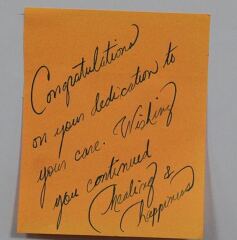 Congratulations
on your dedication to
your care. Wishing
you continued
healing &
happiness